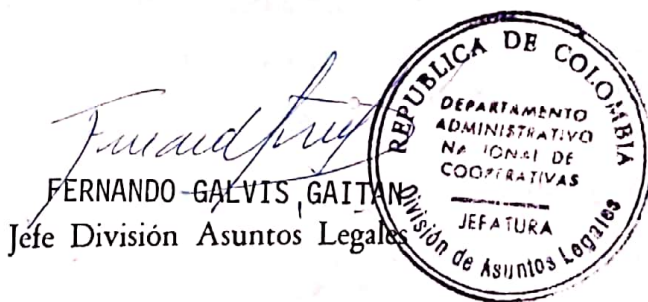 FERNANDO GALVIS GAITAN
Jefe División Asuntos Legales
REPUBLICA DE COLOMBIA
DEPARTAMENTO
ADMINISTRATIVO
NACIONAL DE
COOPERATIVAS
JEFATURA
División de Asuntos Legales